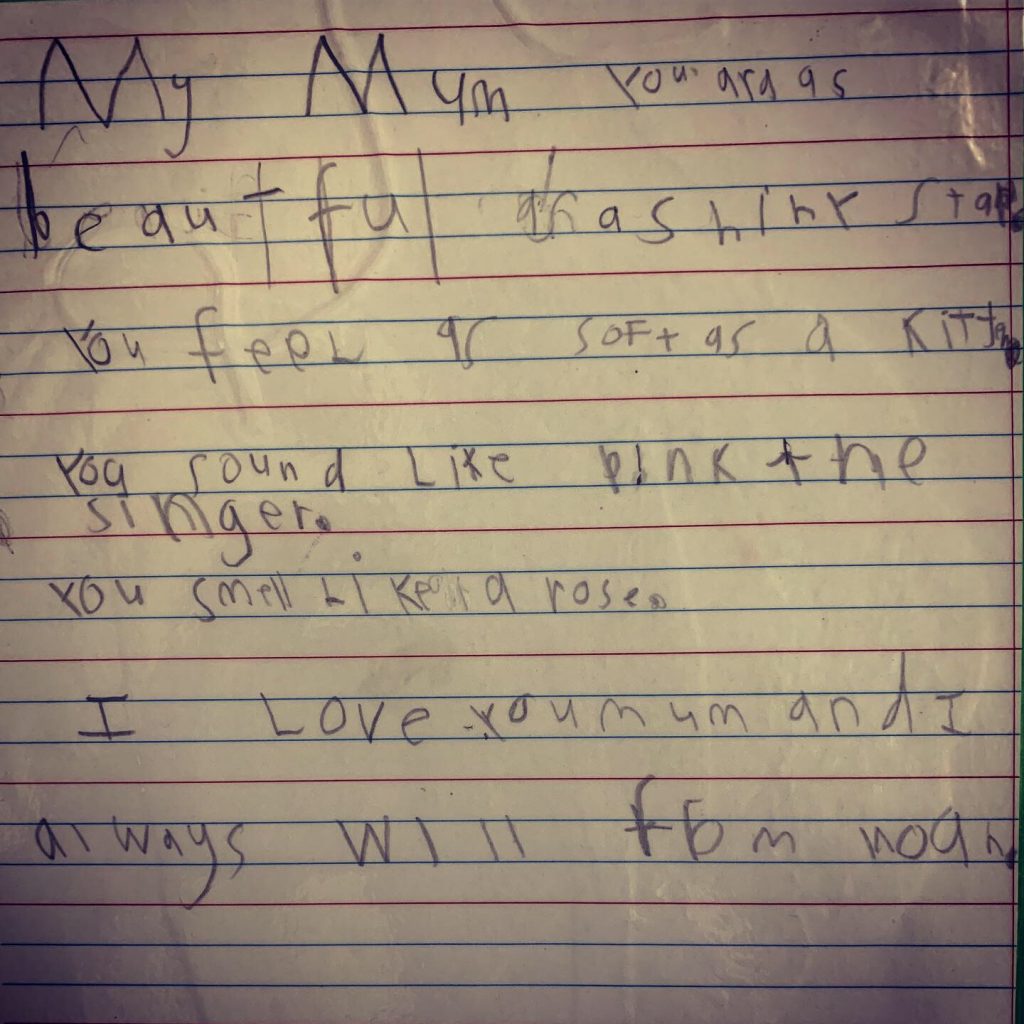 My Mum you ara as
beautful as a shiny star
you feel as soft as a kitt
you sound Like pink the
singer.
you smell Like a rose.
I Love you mum and I
always will from noah